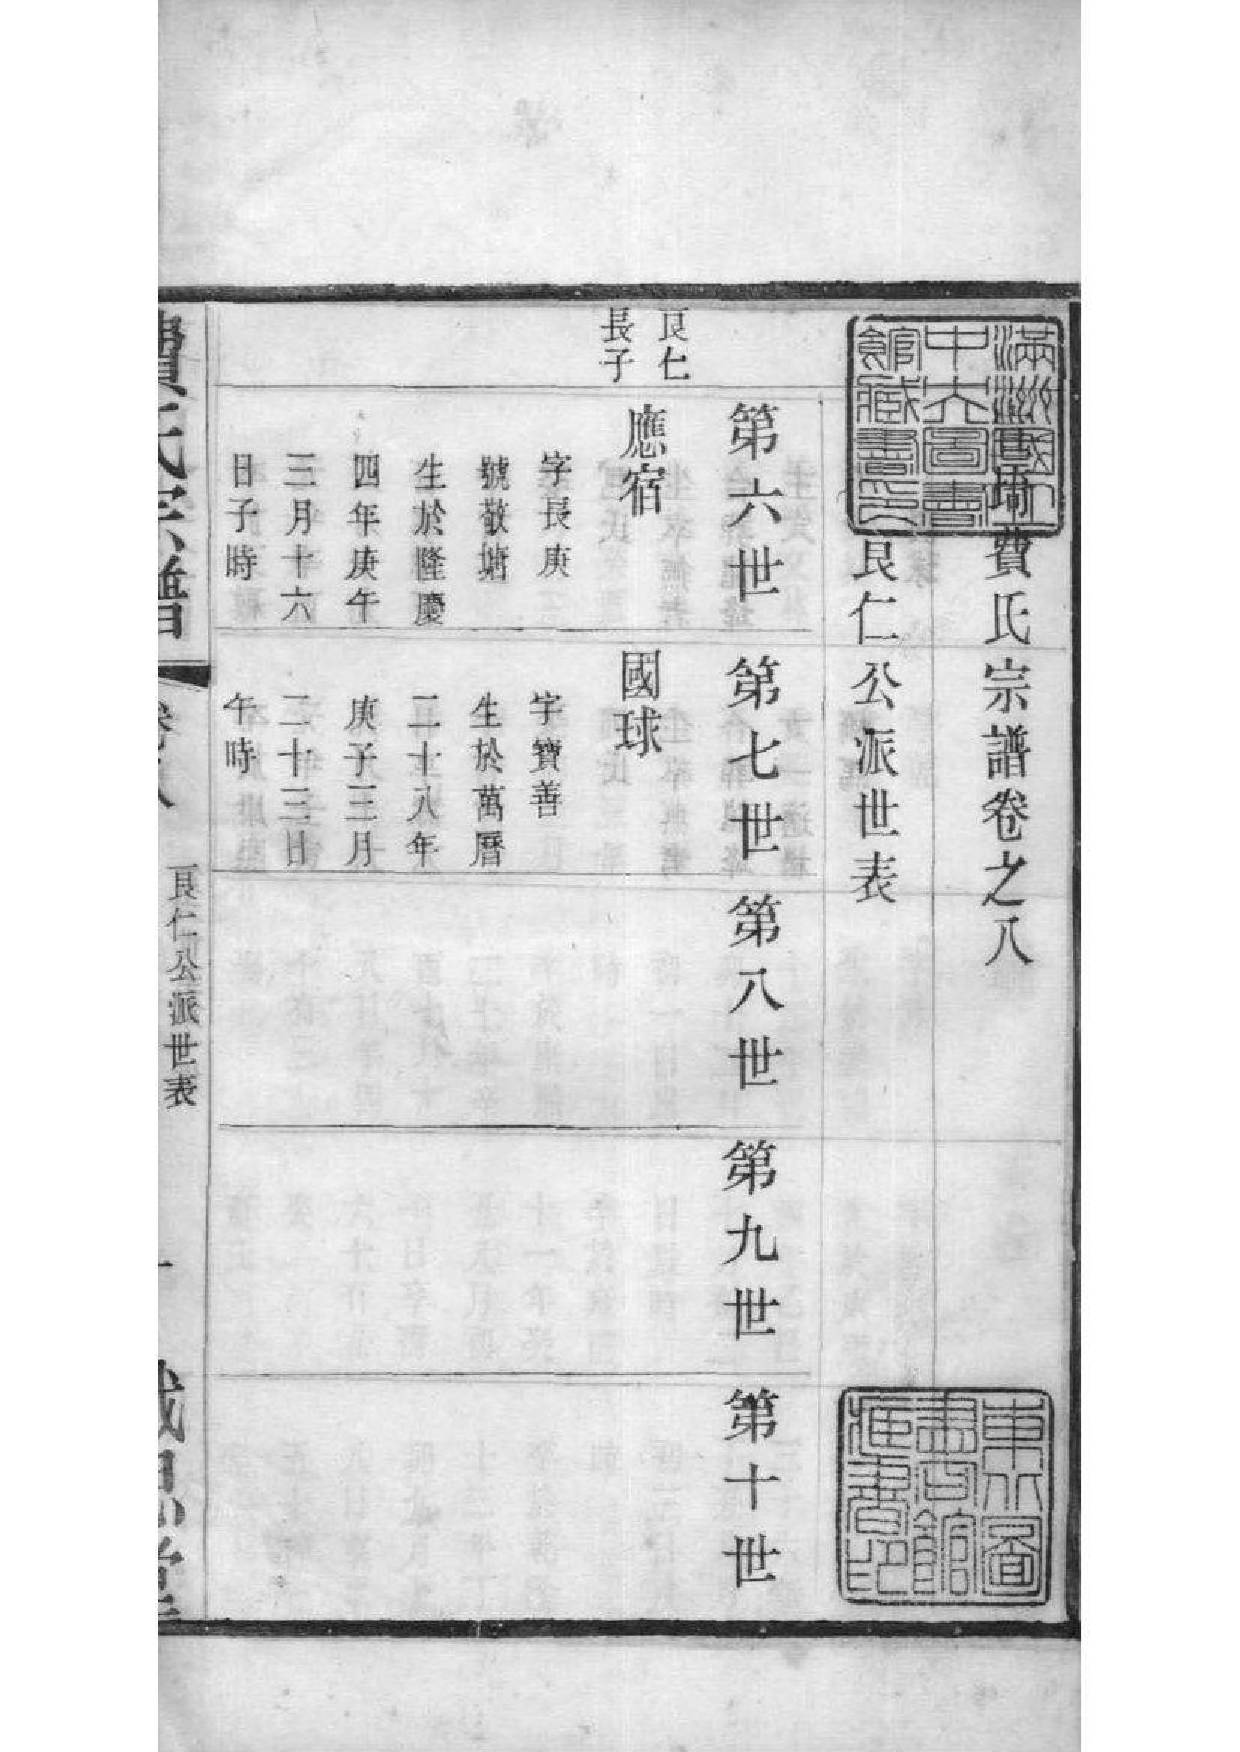 費氏宗譜卷之八
良仁公派世表
第六世
第七世
第八世
第九世
第十世
良仁
長子
應宿
字長庚
號敬塘
生於隆慶
四年庚午
三月十六
日子時
國球
字寶善
生於萬曆
二十八年
庚子三月
二十三日
午時
費氏宗譜
卷之八
良仁公派世表
一
滿洲國立
中央圖書
館藏書印
東北圖
書館
藏書印